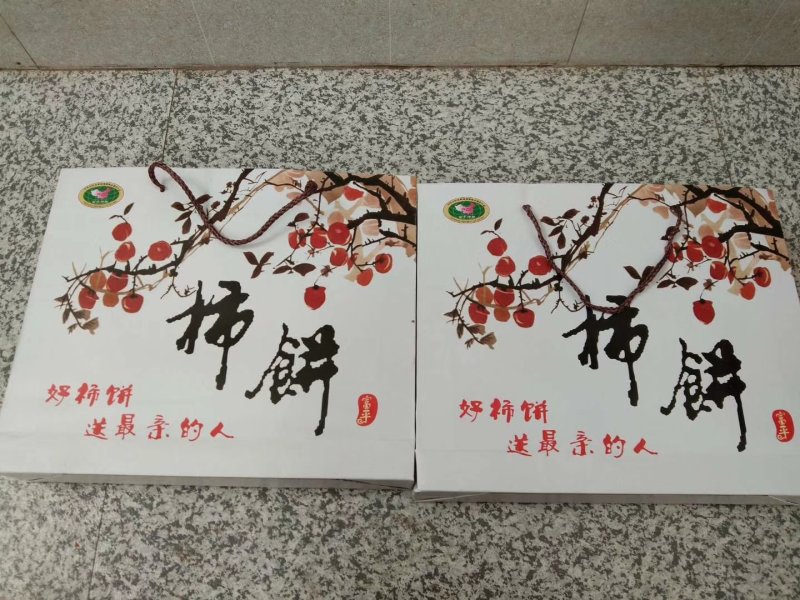 柿餅
好柿饼
送最亲的人
富平
柿餅
好柿饼
送最亲的人
富平